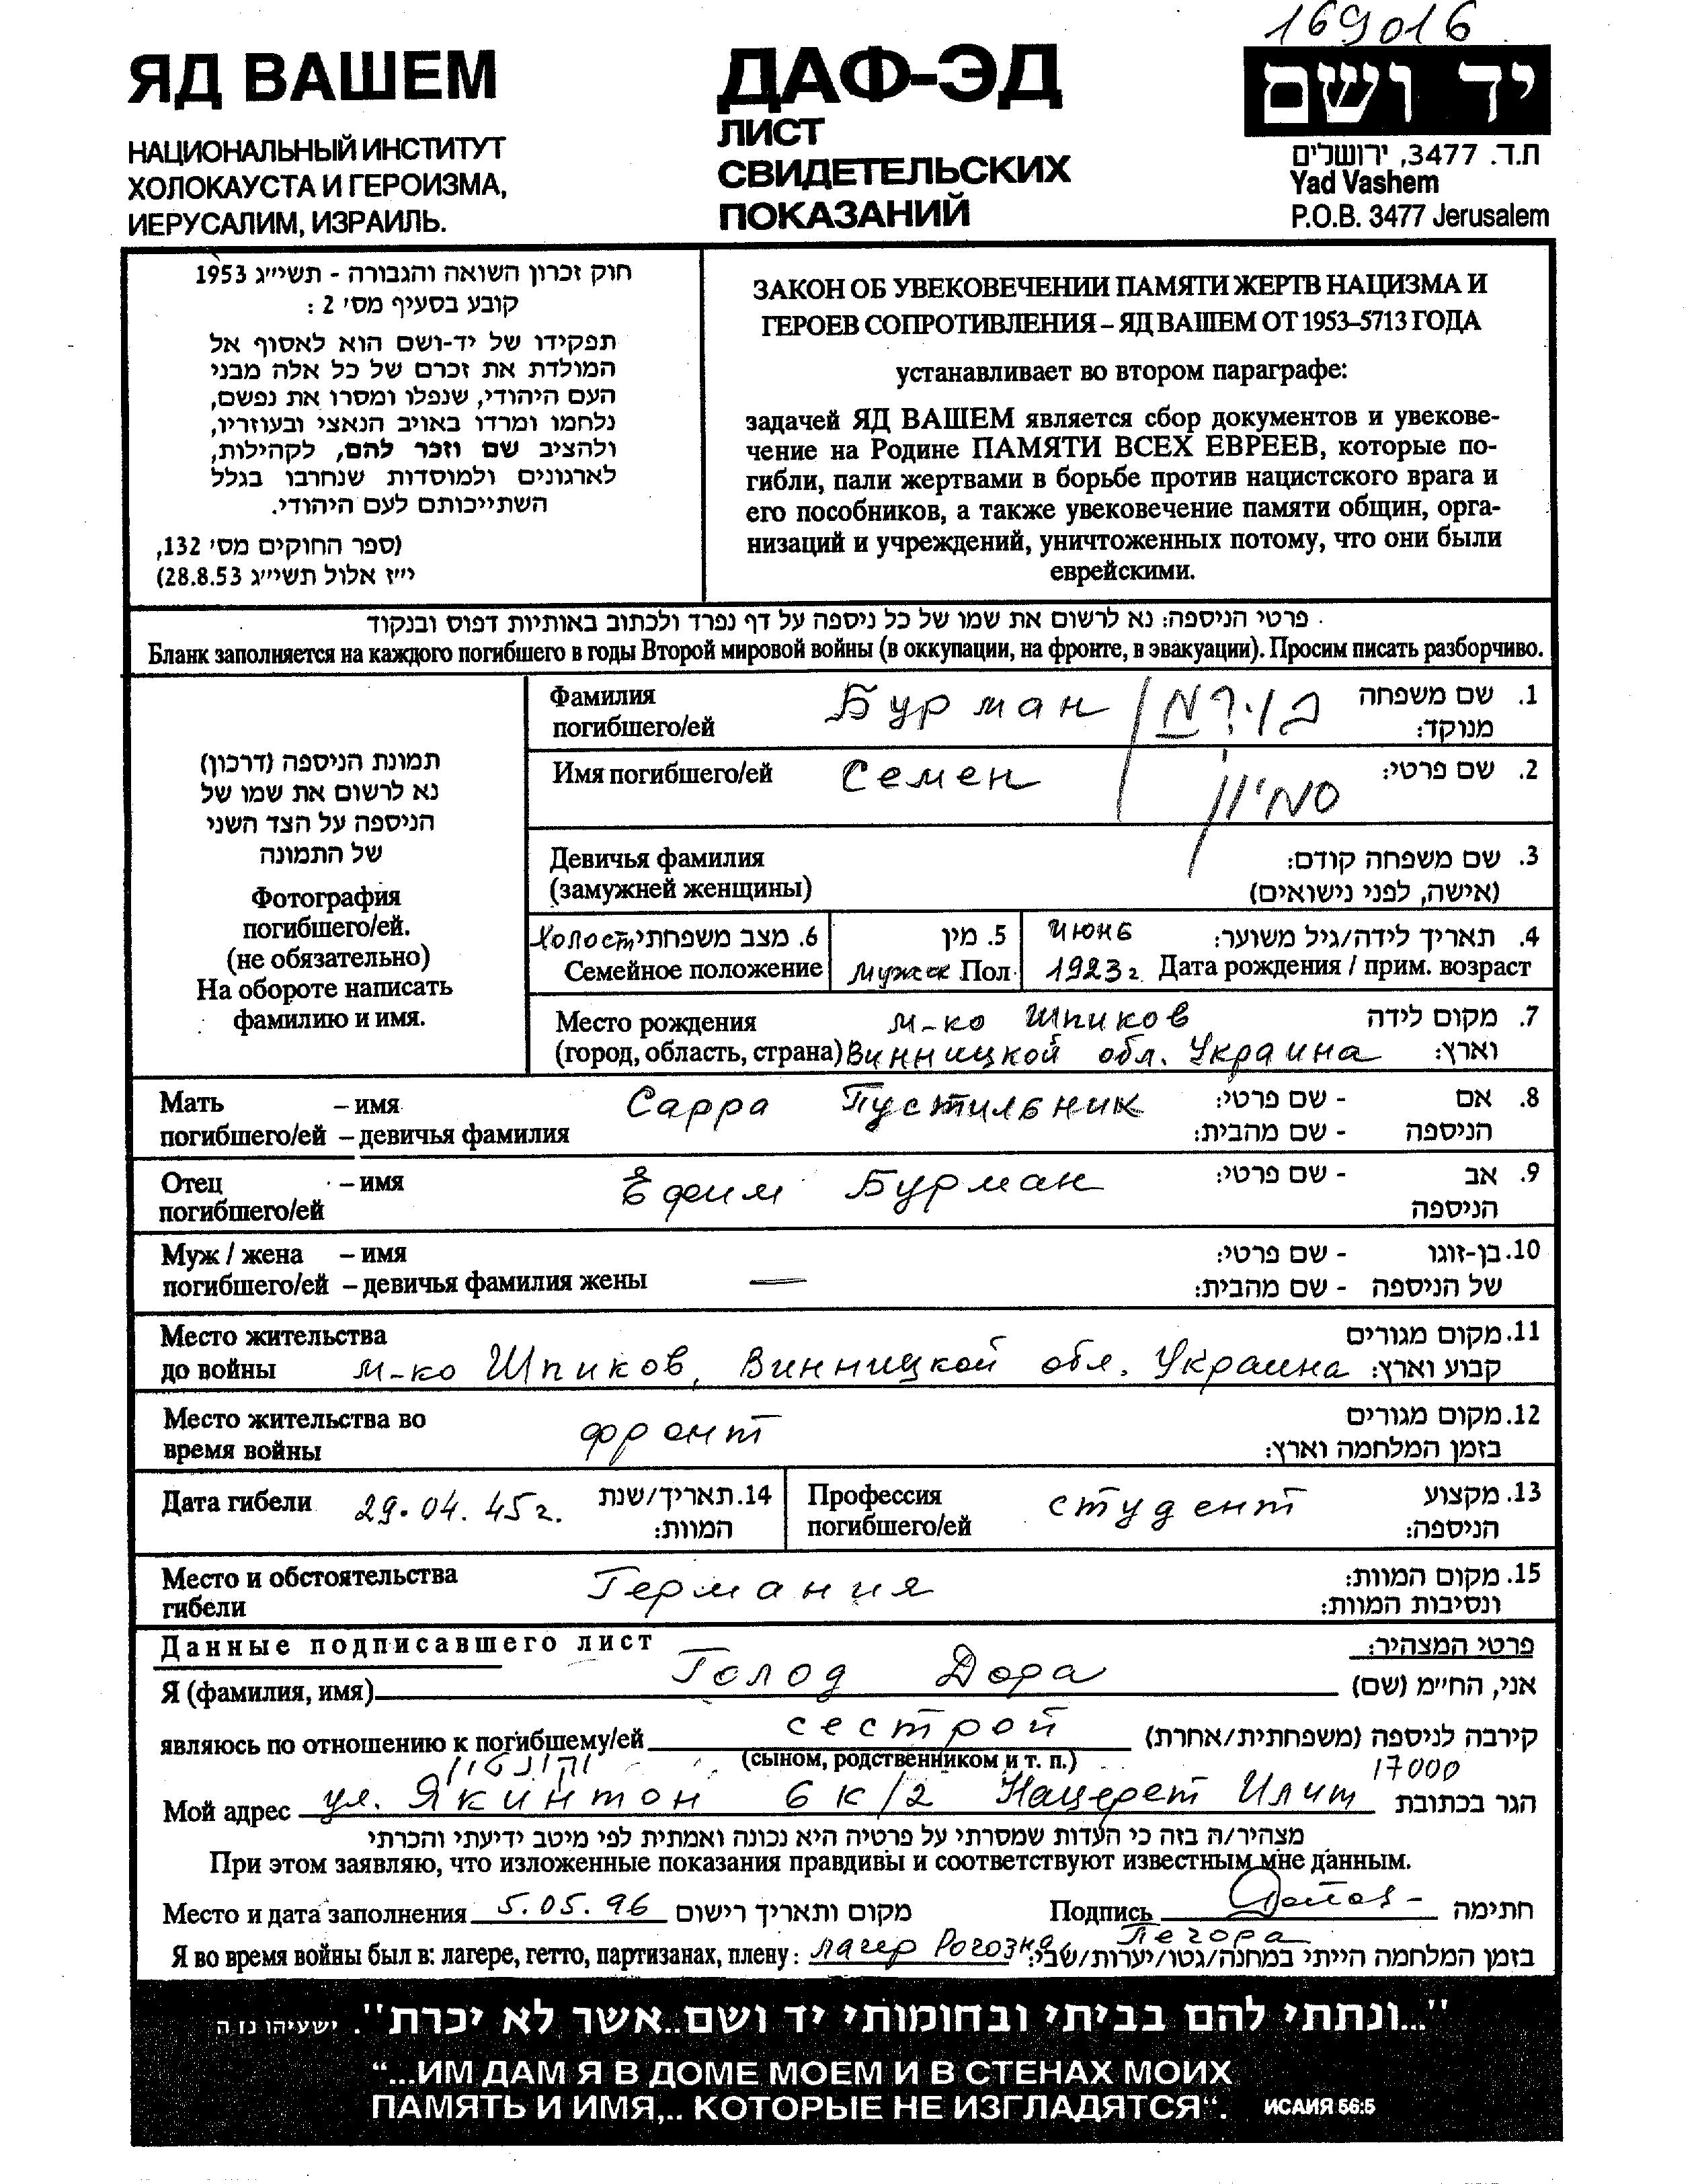 169016
ЯД ВАШЕМ
НАЦИОНАЛЬНЫЙ ИНСТИТУТ
ХОЛОКАУСТА И ГЕРОИЗМА,
ИЕРУСАЛИМ, ИЗРАИЛЬ.
ДАФ-ЭД
ЛИСТ
СВИДЕТЕЛЬСКИХ
ПОКАЗАНИЙ
יד ושם
ת.ד. 3477, ירושלים
Yad Vashem
P.O.B. 3477 Jerusalem
חוק זכרון השואה והגבורה - תשי״ג 1953
קובע בסעיף מס׳ 2 :
תפקידו של יד-ושם הוא לאסוף אל
המולדת את זכרם של כל אלה מבני
העם היהודי, שנפלו ומסרו את נפשם,
נלחמו ומרדו באויב הנאצי ובעוזריו,
ולהציב שם וזכר להם, לקהילות,
לארגונים ולמוסדות שנחרבו בגלל
השתייכותם לעם היהודי.
(ספר החוקים מס׳ 132,
י״ז אלול תשי״ג 28.8.53)
ЗАКОН ОБ УВЕКОВЕЧЕНИИ ПАМЯТИ ЖЕРТВ НАЦИЗМА И
ГЕРОЕВ СОПРОТИВЛЕНИЯ – ЯД ВАШЕМ ОТ 1953–5713 ГОДА
устанавливает во втором параграфе:
задачей ЯД ВАШЕМ является сбор документов и увекове-
чение на Родине ПАМЯТИ ВСЕХ ЕВРЕЕВ, которые по-
гибли, пали жертвами в борьбе против нацистского врага и
его пособников, а также увековечение памяти общин, орга-
низаций и учреждений, уничтоженных потому, что они были
еврейскими.
פרטי הניספה: נא לרשום את שמו של כל ניספה על דף נפרד ולכתוב באותיות דפוס ובנקוד
Бланк заполняется на каждого погибшего в годы Второй мировой войны (в оккупации, на фронте, в эвакуации). Просим писать разборчиво.
תמונת הניספה (דרכון)
נא לרשום את שמו של
הניספה על הצד השני
של התמונה
Фотография
погибшего/ей.
(не обязательно)
На обороте написать
фамилию и имя.
Фамилия Бурман בורמאן 1. שם משפחה
погибшего/ей מנוקד:
Имя погибшего/ей Семен סמיון 2. שם פרטי:
Девичья фамилия 3. שם משפחה קודם:
(замужней женщины) (אישה, לפני נישואים)
Холост 6. מצב משפחתי 5. מין июнь 4. תאריך לידה/גיל משוער:
Семейное положение мужск Пол 1923г. Дата рождения / прим. возраст
Место рождения м-ко Шпиков 7. מקום לידה
(город, область, страна) Винницкой обл. Украина וארץ:
Мать – имя Сарра Пустильник 8. אם - שם פרטי:
погибшего/ей – девичья фамилия הניספה - שם מהבית:
Отец – имя Ефим Бурман 9. אב - שם פרטי:
погибшего/ей הניספה
Муж / жена – имя 10. בן-זוגו - שם פרטי:
погибшего/ей – девичья фамилия жены — של הניספה - שם מהבית:
Место жительства 11. מקום מגורים
до войны м-ко Шпиков, Винницкой обл. Украина קבוע וארץ:
Место жительства во фронт 12. מקום מגורים
время войны בזמן המלחמה וארץ:
Дата гибели 29.04.45г. 14. תאריך/שנת המוות:
Профессия студент 13. מקצוע
погибшего/ей הניספה:
Место и обстоятельства Германия 15. מקום המוות:
гибели ונסיבות המוות:
Данные подписавшего лист פרטי המצהיר:
Я (фамилия, имя) Голод Дора אני, החי״מ (שם)
являюсь по отношению к погибшему/ей сестрой קירבה לניספה (משפחתית/אחרת)
(сыном, родственником и т. п.) 17000
Мой адрес ул. Якинтон 6 к/2 Нацерет Илит הגר בכתובת
מצהיר/ה בזה כי העדות שמסרתי על פרטיה היא נכונה ואמתית לפי מיטב ידיעתי והכרתי
При этом заявляю, что изложенные показания правдивы и соответствуют известным мне данным.
Место и дата заполнения 5.05.96 מקום ותאריך רישום Подпись חתימה
Я во время войны был в: лагере, гетто, партизанах, плену: лагер Рогозка, Печора בזמן המלחמה הייתי במחנה/גטו/יערות/שבי:
"...ונתתי להם בביתי ובחומותי יד ושם..אשר לא יכרת". ישעיהו נז ה
“...ИМ ДАМ Я В ДОМЕ МОЕМ И В СТЕНАХ МОИХ
ПАМЯТЬ И ИМЯ,.. КОТОРЫЕ НЕ ИЗГЛАДЯТСЯ“. ИСАИЯ 56:5